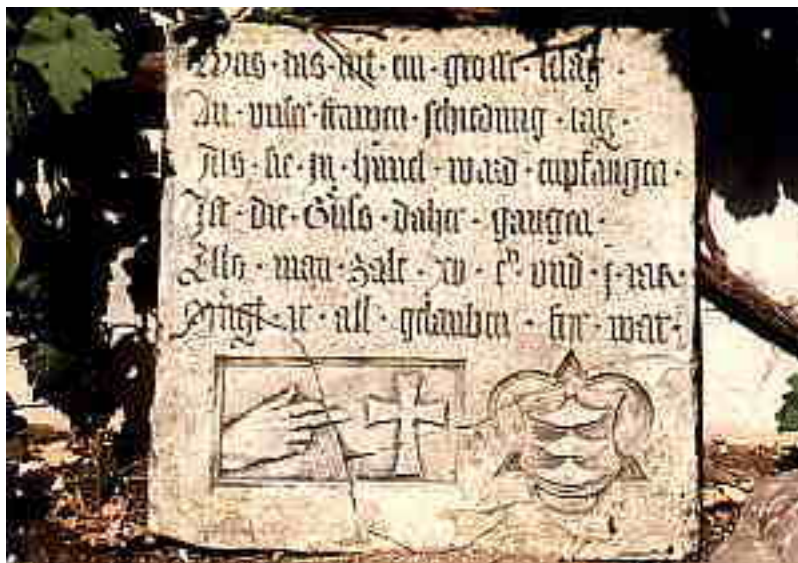 Was · das · nit · ein · grosse · klag ·
An · unser · frawen · schiedung · tag ·
Als · sie · in · himel · ward · enpfangen ·
Ist · die · Güss · daher · gangen ·
Als · man · zalt · xv · cͦ · und · j · iar ·
Mügt · ir · all · gelauben · fyr · war ·